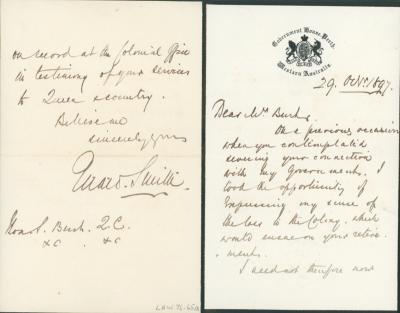 Government House, Perth,
Western Australia.
29. Octr. 1897.
Dear Mr Burt,
On a previous occasion
when you contemplated
severing your connection
with my Government, I
took the opportunity of
expressing my sense of
the loss to the Colony, which
would ensue on your retire-
ment.
I need not therefore now
on record at the Colonial Office
in testimony of your services
to Queen & country.
Believe me
sincerely yours
Gerard Smith.
Honbl. S. Burt. Q.C.
&c &c